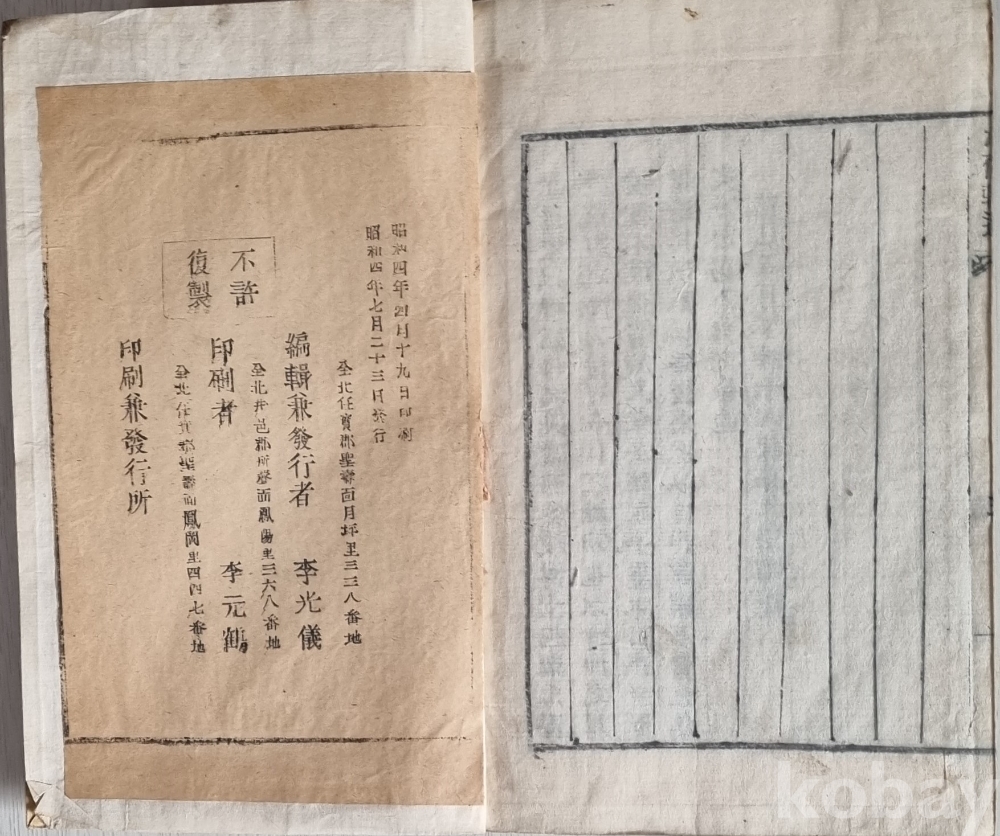 昭和四年四月十九日印刷
昭和四年七月二十三日發行
全北任實郡聖壽面月坪里三三八番地
編輯兼發行者 李光儀
全北井邑郡所聲面鳳陽里三六八番地
印刷者 李元鶴
全北任實郡聖壽面鳳岡里四四七番地
印刷兼發行所
不許
復製
kobay